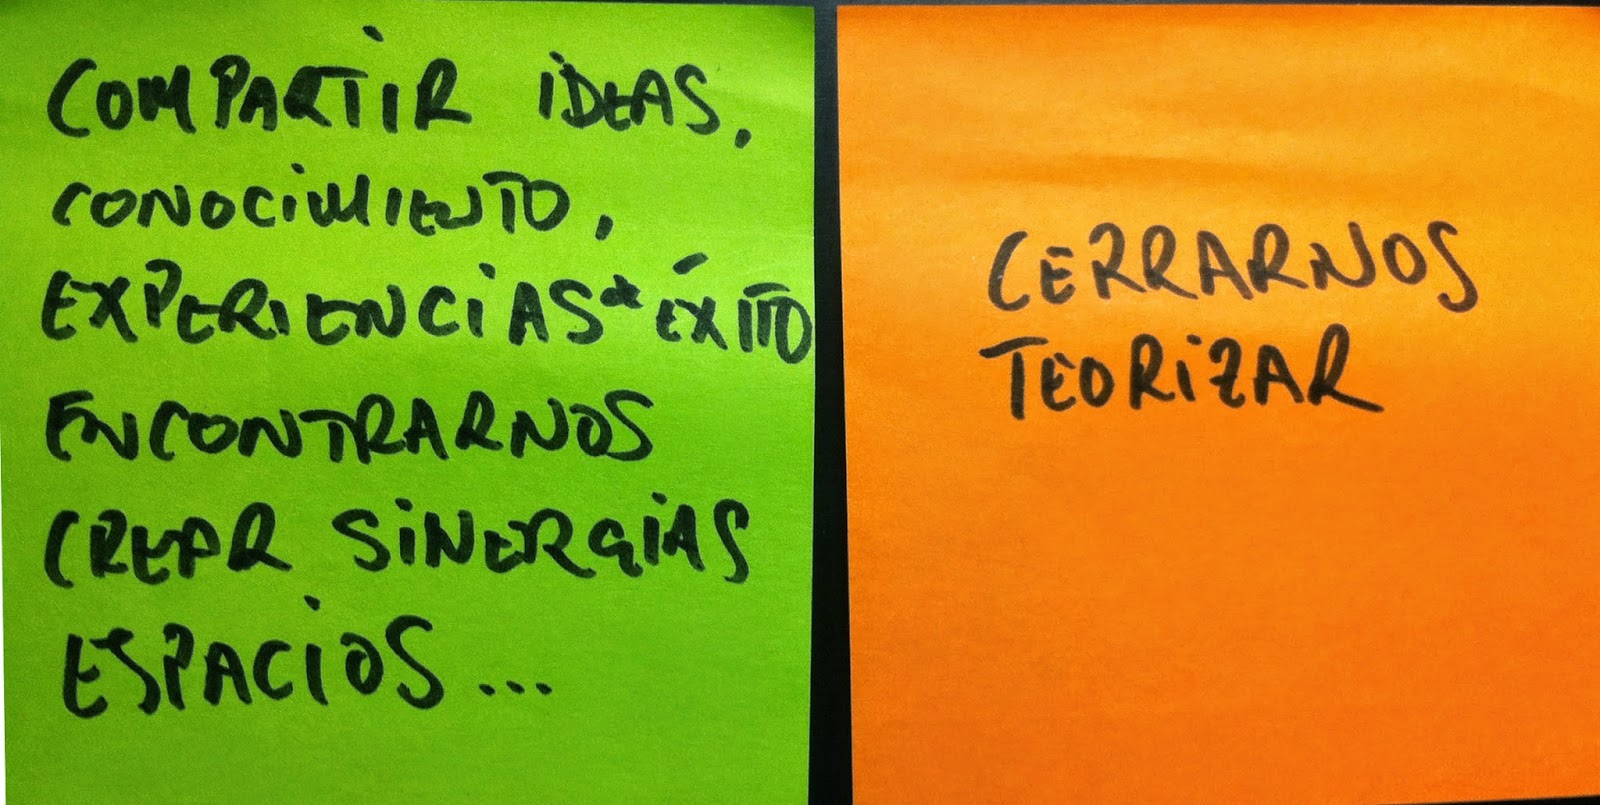 COMPARTIR IDEAS,
CONOCIMIENTO,
EXPERIENCIAS de ÉXITO
ENCONTRARNOS
CREAR SINERGIAS
ESPACIOS...
CERRARNOS
TEORIZAR